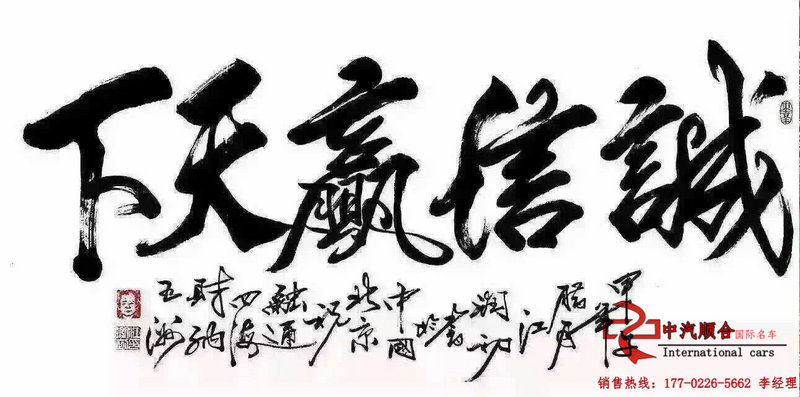 誠信贏天下
腊月
江
中國
北京
祝
融通
四海
财纳
五洲
中汽顺合国际名车
International cars
销售热线：177-0226-5662 李经理